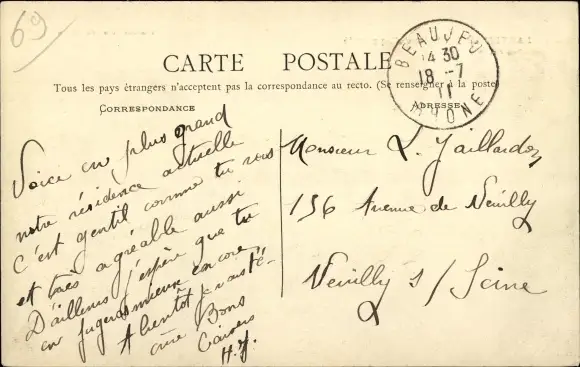 69
CARTE POSTALE
Tous les pays étrangers n'acceptent pas la correspondance au recto. (Se renseigner à la poste)
CORRESPONDANCE
ADRESSE
BEAUJEU
14 30
18 -7
11
RHONE
Voice en plus grand
notre résidence actuelle
C'est gentil comme tu vois
et très agréable aussi
D'ailleurs j'espère que tu
en jugeras mieux encore
A bientôt
Bons
H. J.
Monsieur L. Jaillardon
156 Avenue de Neuilly
Neuilly s/ Seine